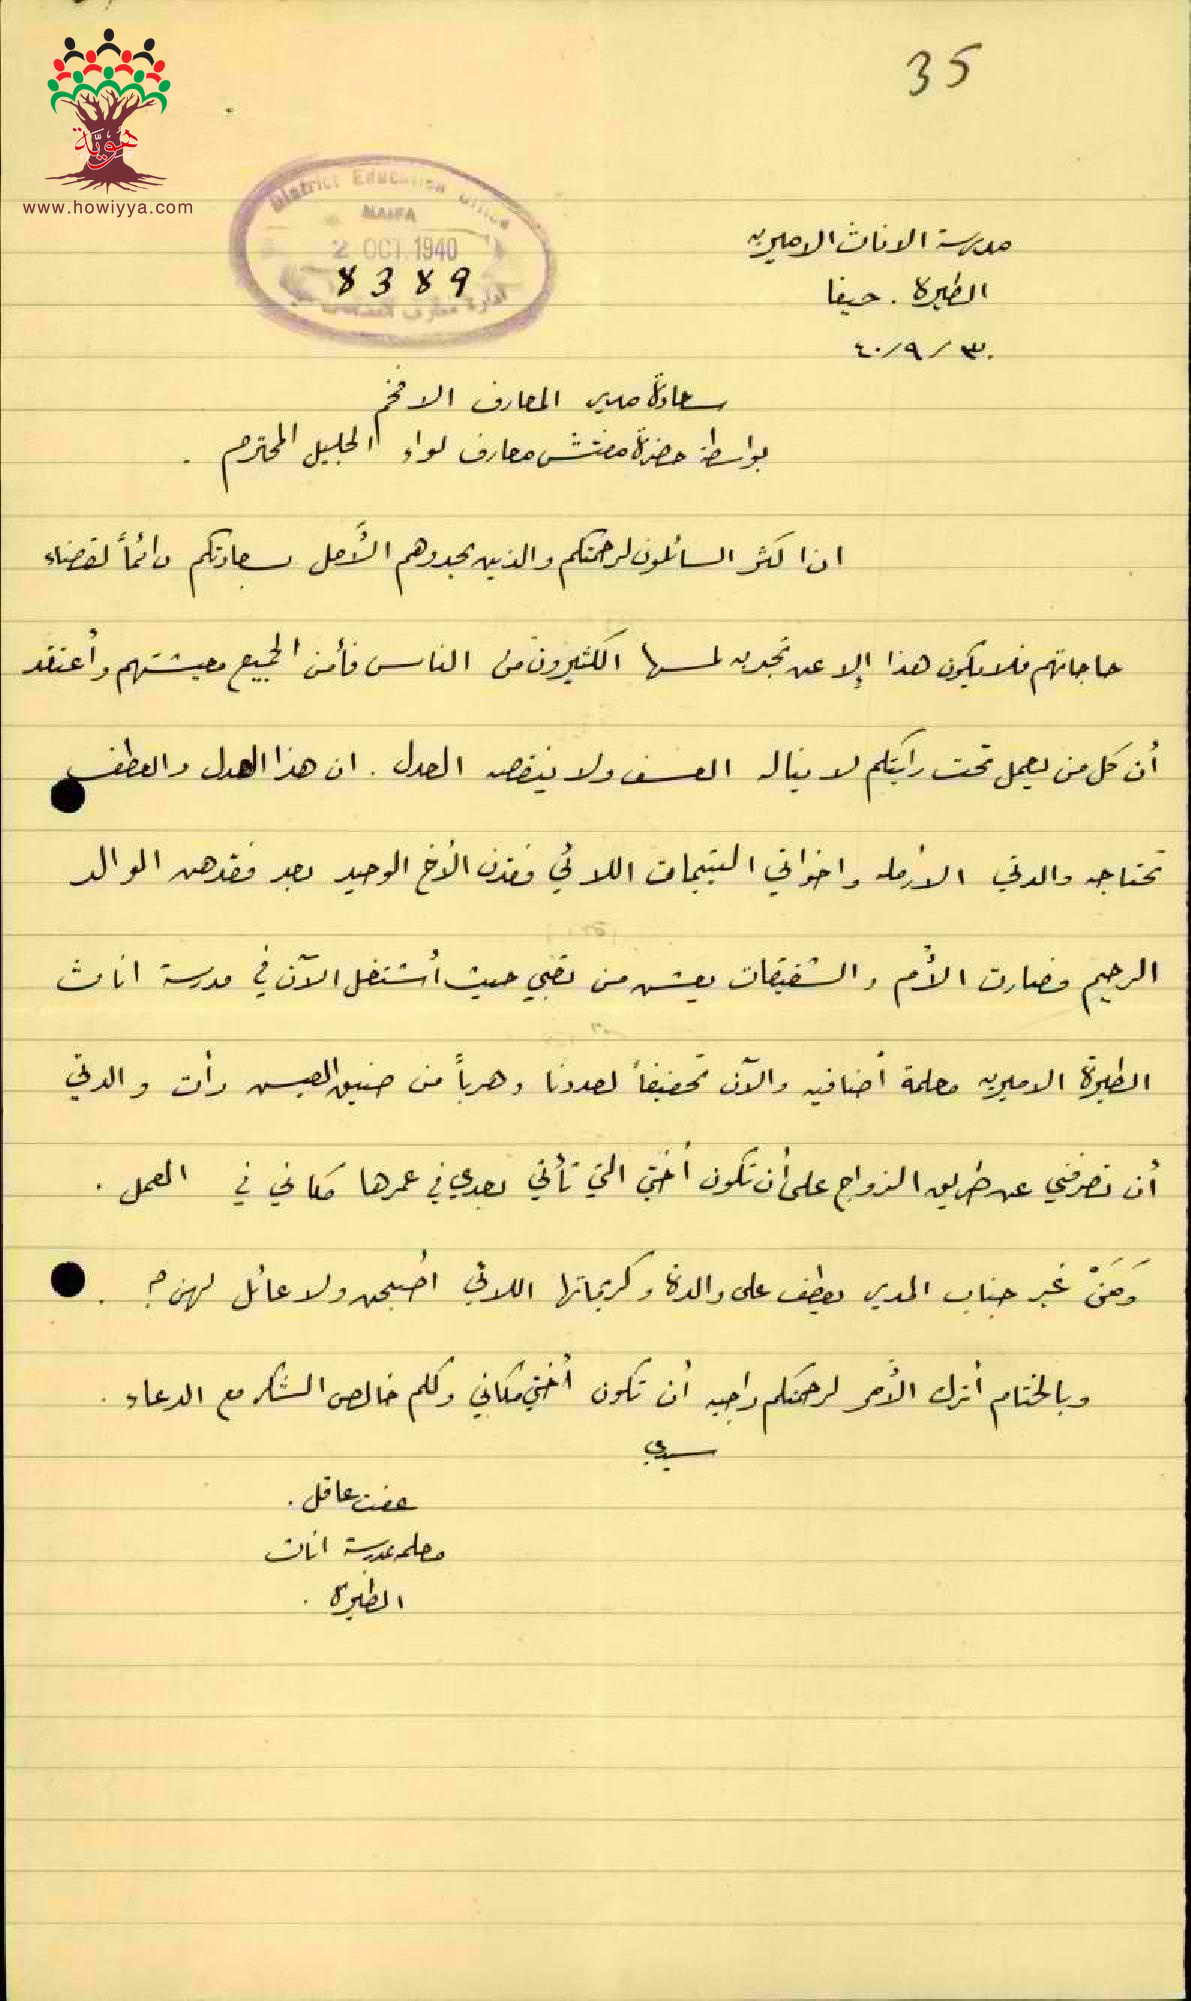 35
هوية
www.howiyya.com
District Education Office
HAIFA
2 OCT. 1940
8389
ادارة معارف
مدرسة الاناث الاميريه
الطيرة . حيفا
٣٠ / ٩ / ٤٠
سعادة مدير المعارف الافخم
بواسطة حضرة مفتش معارف لواء الجليل المحترم .
اذا كثر السائلون لرحمتكم والذين يحدوهم الأمل بسعادتكم دائماً لقضاء
حاجاتهم فلا يكون هذا إلا عن تجربه لمسها الكثيرون من الناس فأمن الجميع معيشتهم وأعتقد
أن كل من يعمل تحت رايتكم لا يناله العسف ولا ينقصه العدل . ان هذا العدل والعطف
تحتاجه والدتي الأرمله واخواتي اليتيمات اللائي فقدن الأخ الوحيد بعد فقدهن الوالد
الرحيم فصارت الأم والشقيقات يعشن من تعبي حيث أشتغل الآن في مدرسة اناث
الطيرة الاميريه معلمة أضافيه والآن تخفيفاً لعددنا وهرباً من ضيق العيش رأت والدتي
أن تصرفني عن طريق الزواج على أن تكون أختي التي تأتي بعدي في عمرها مكاني في العمل .
وَمَنْ غير جناب المدير يعطف على والدة وكريماتها اللائي أصبحن ولا عائل لهن ؟ .
وبالختام أترك الأمر لرحمتكم راجيه أن تكون أختي مكاني ولكم خالص الشكر مع الدعاء .
سيدي
عفت عاقل .
معلمه بمدرسة اناث
الطيرة .